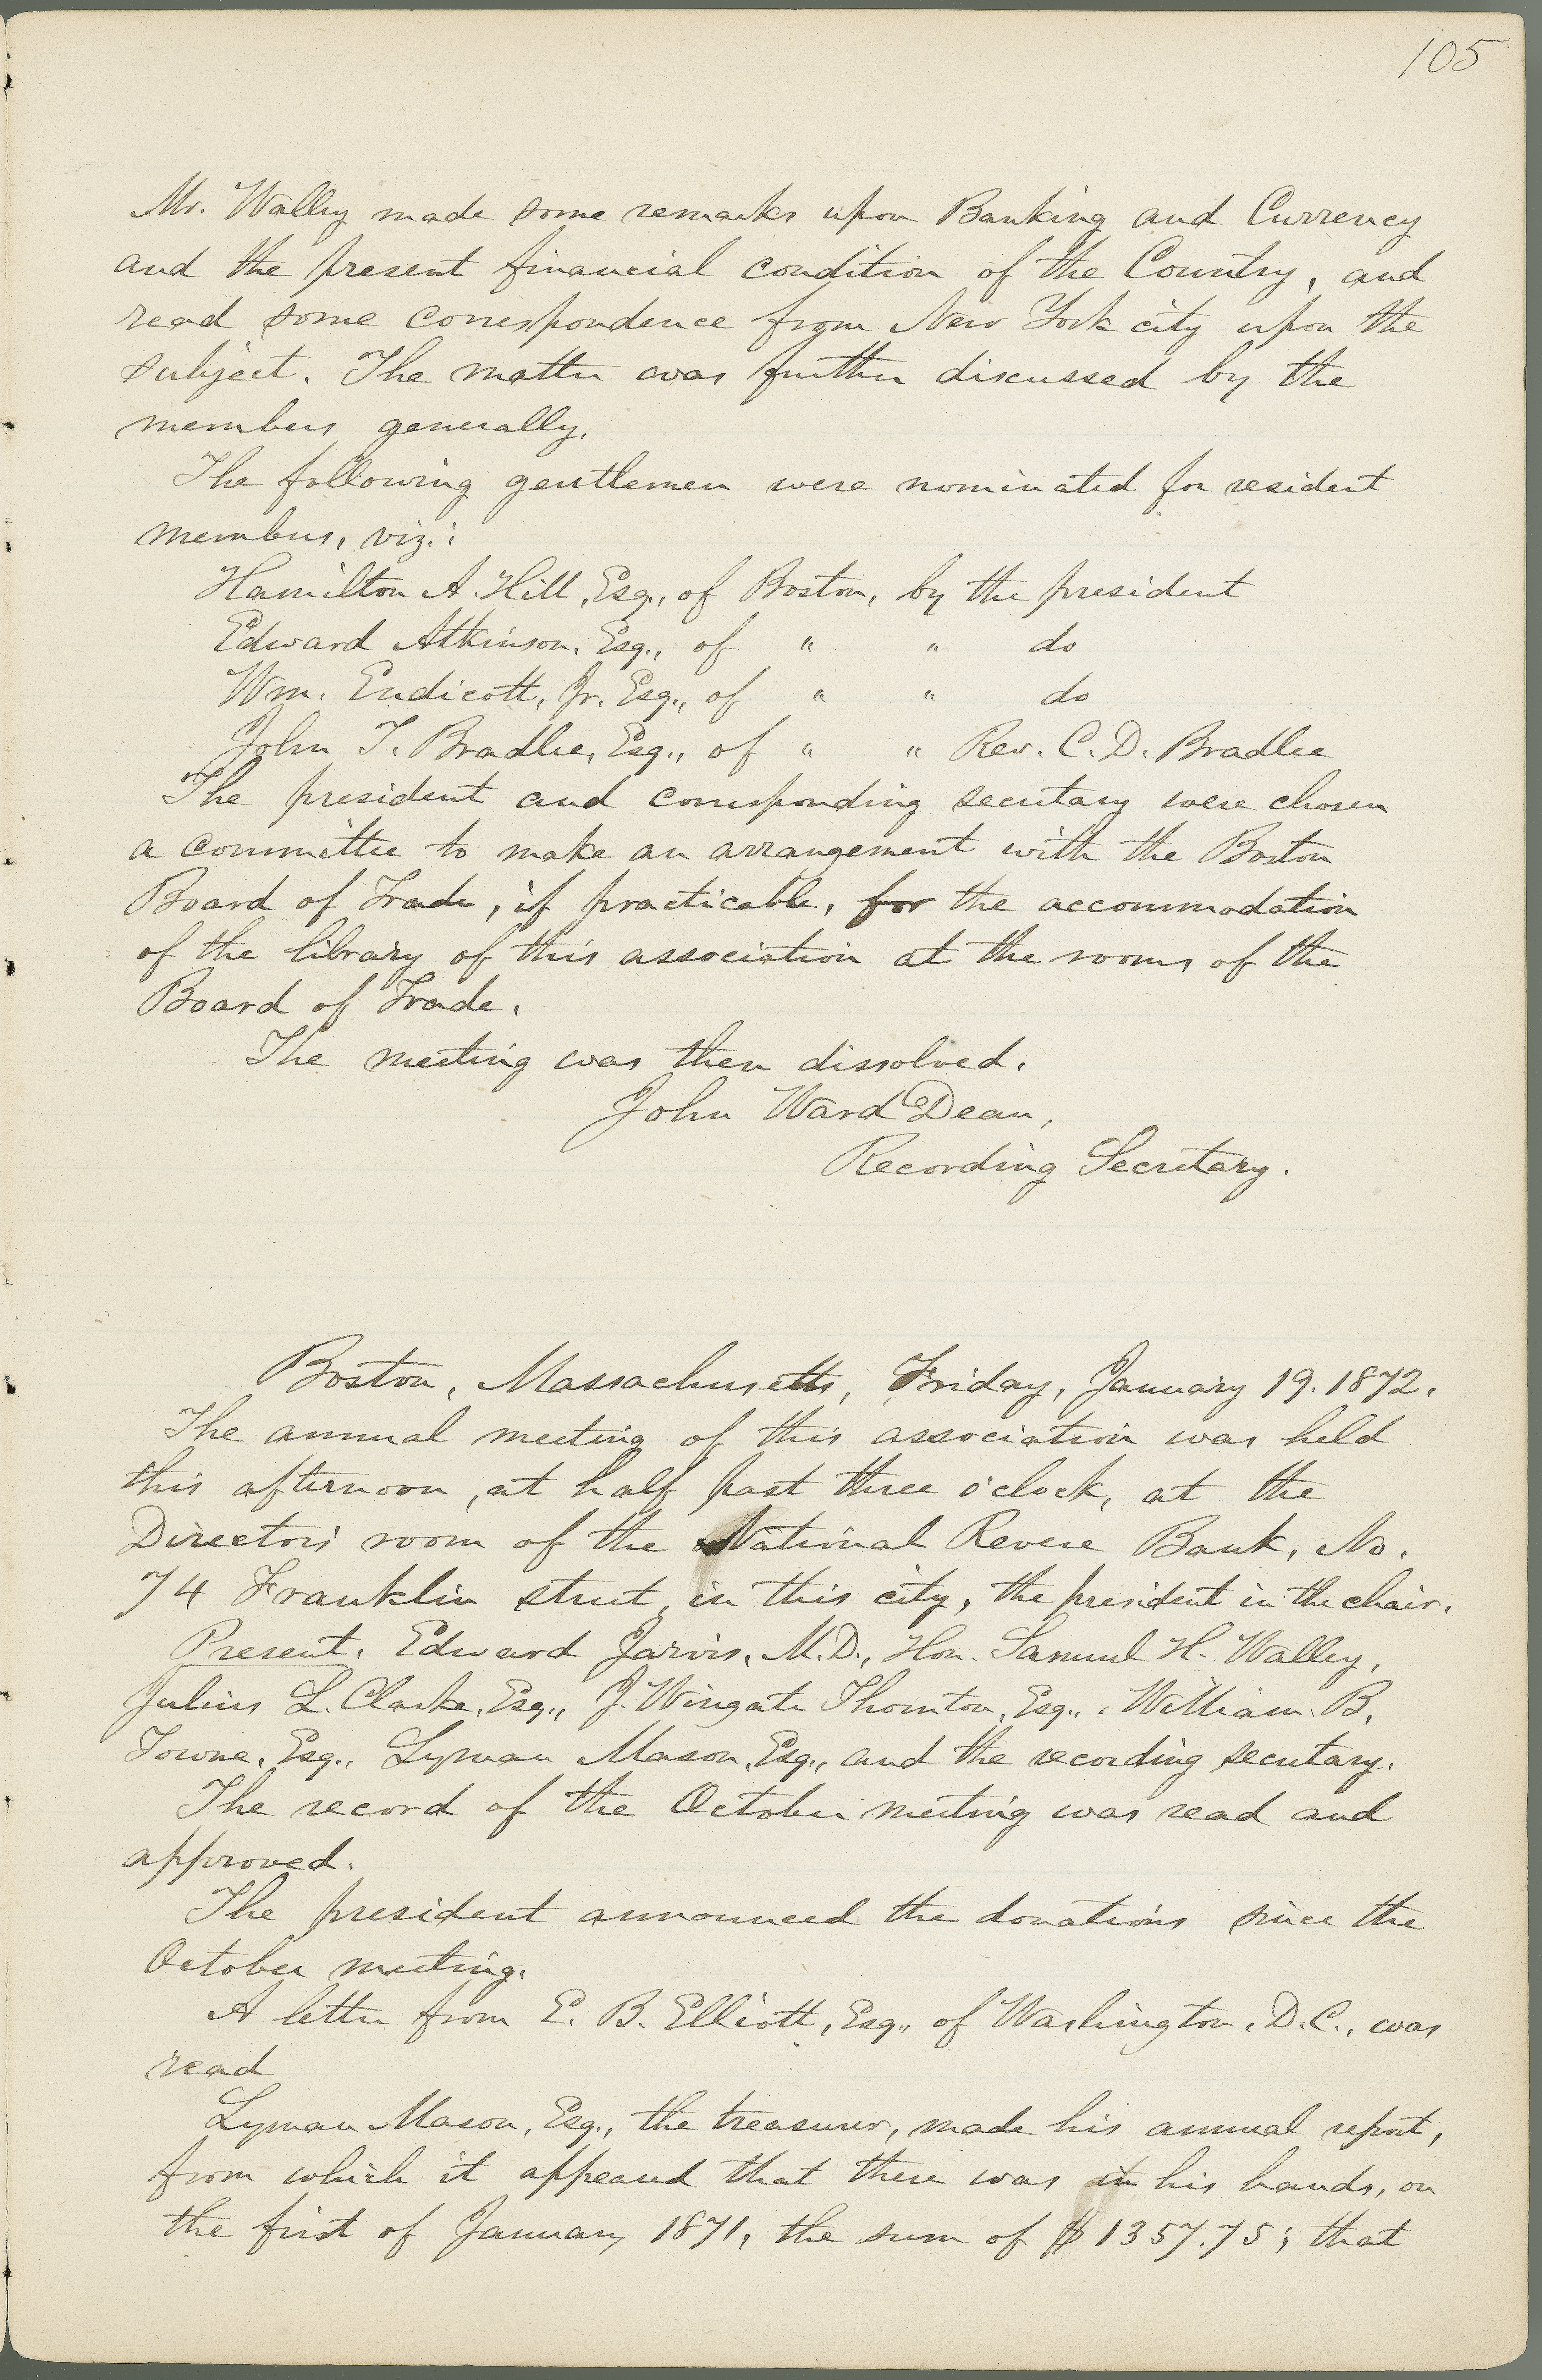 105
Mr. Walley made some remarks upon Banking and Currency
and the present financial condition of the Country, and
read some correspondence from New York city upon the
subject. The matter was further discussed by the
members generally.
The following gentlemen were nominated for resident
members, viz.:
Hamilton A. Hill, Esq., of Boston, by the president
Edward Atkinson, Esq., of " " do
Wm. Endicott, Jr. Esq., of " " do
John T. Bradlee, Esq., of " " Rev. C. D. Bradlee
The president and corresponding secretary were chosen
a committee to make an arrangement with the Boston
Board of Trade, if practicable, for the accommodation
of the library of this association at the rooms of the
Board of Trade.
The meeting was then dissolved.
John Ward Dean,
Recording Secretary.
Boston, Massachusetts, Friday, January 19. 1872.
The annual meeting of this association was held
this afternoon, at half past three o'clock, at the
Directors' room of the National Revere Bank, No.
74 Franklin street, in this city, the president in the chair.
Present. Edward Jarvis, M.D., Hon. Samuel H. Walley,
Julius L. Clarke, Esq., J. Wingate Thornton, Esq., William B.
Towne, Esq., Lyman Mason, Esq., and the recording secretary.
The record of the October meeting was read and
approved.
The president announced the donations since the
October meeting.
A letter from E. B. Elliott, Esq., of Washington, D.C., was
read
Lyman Mason, Esq., the treasurer, made his annual report,
from which it appeared that there was in his hands, on
the first of January 1871, the sum of $1357.75; that